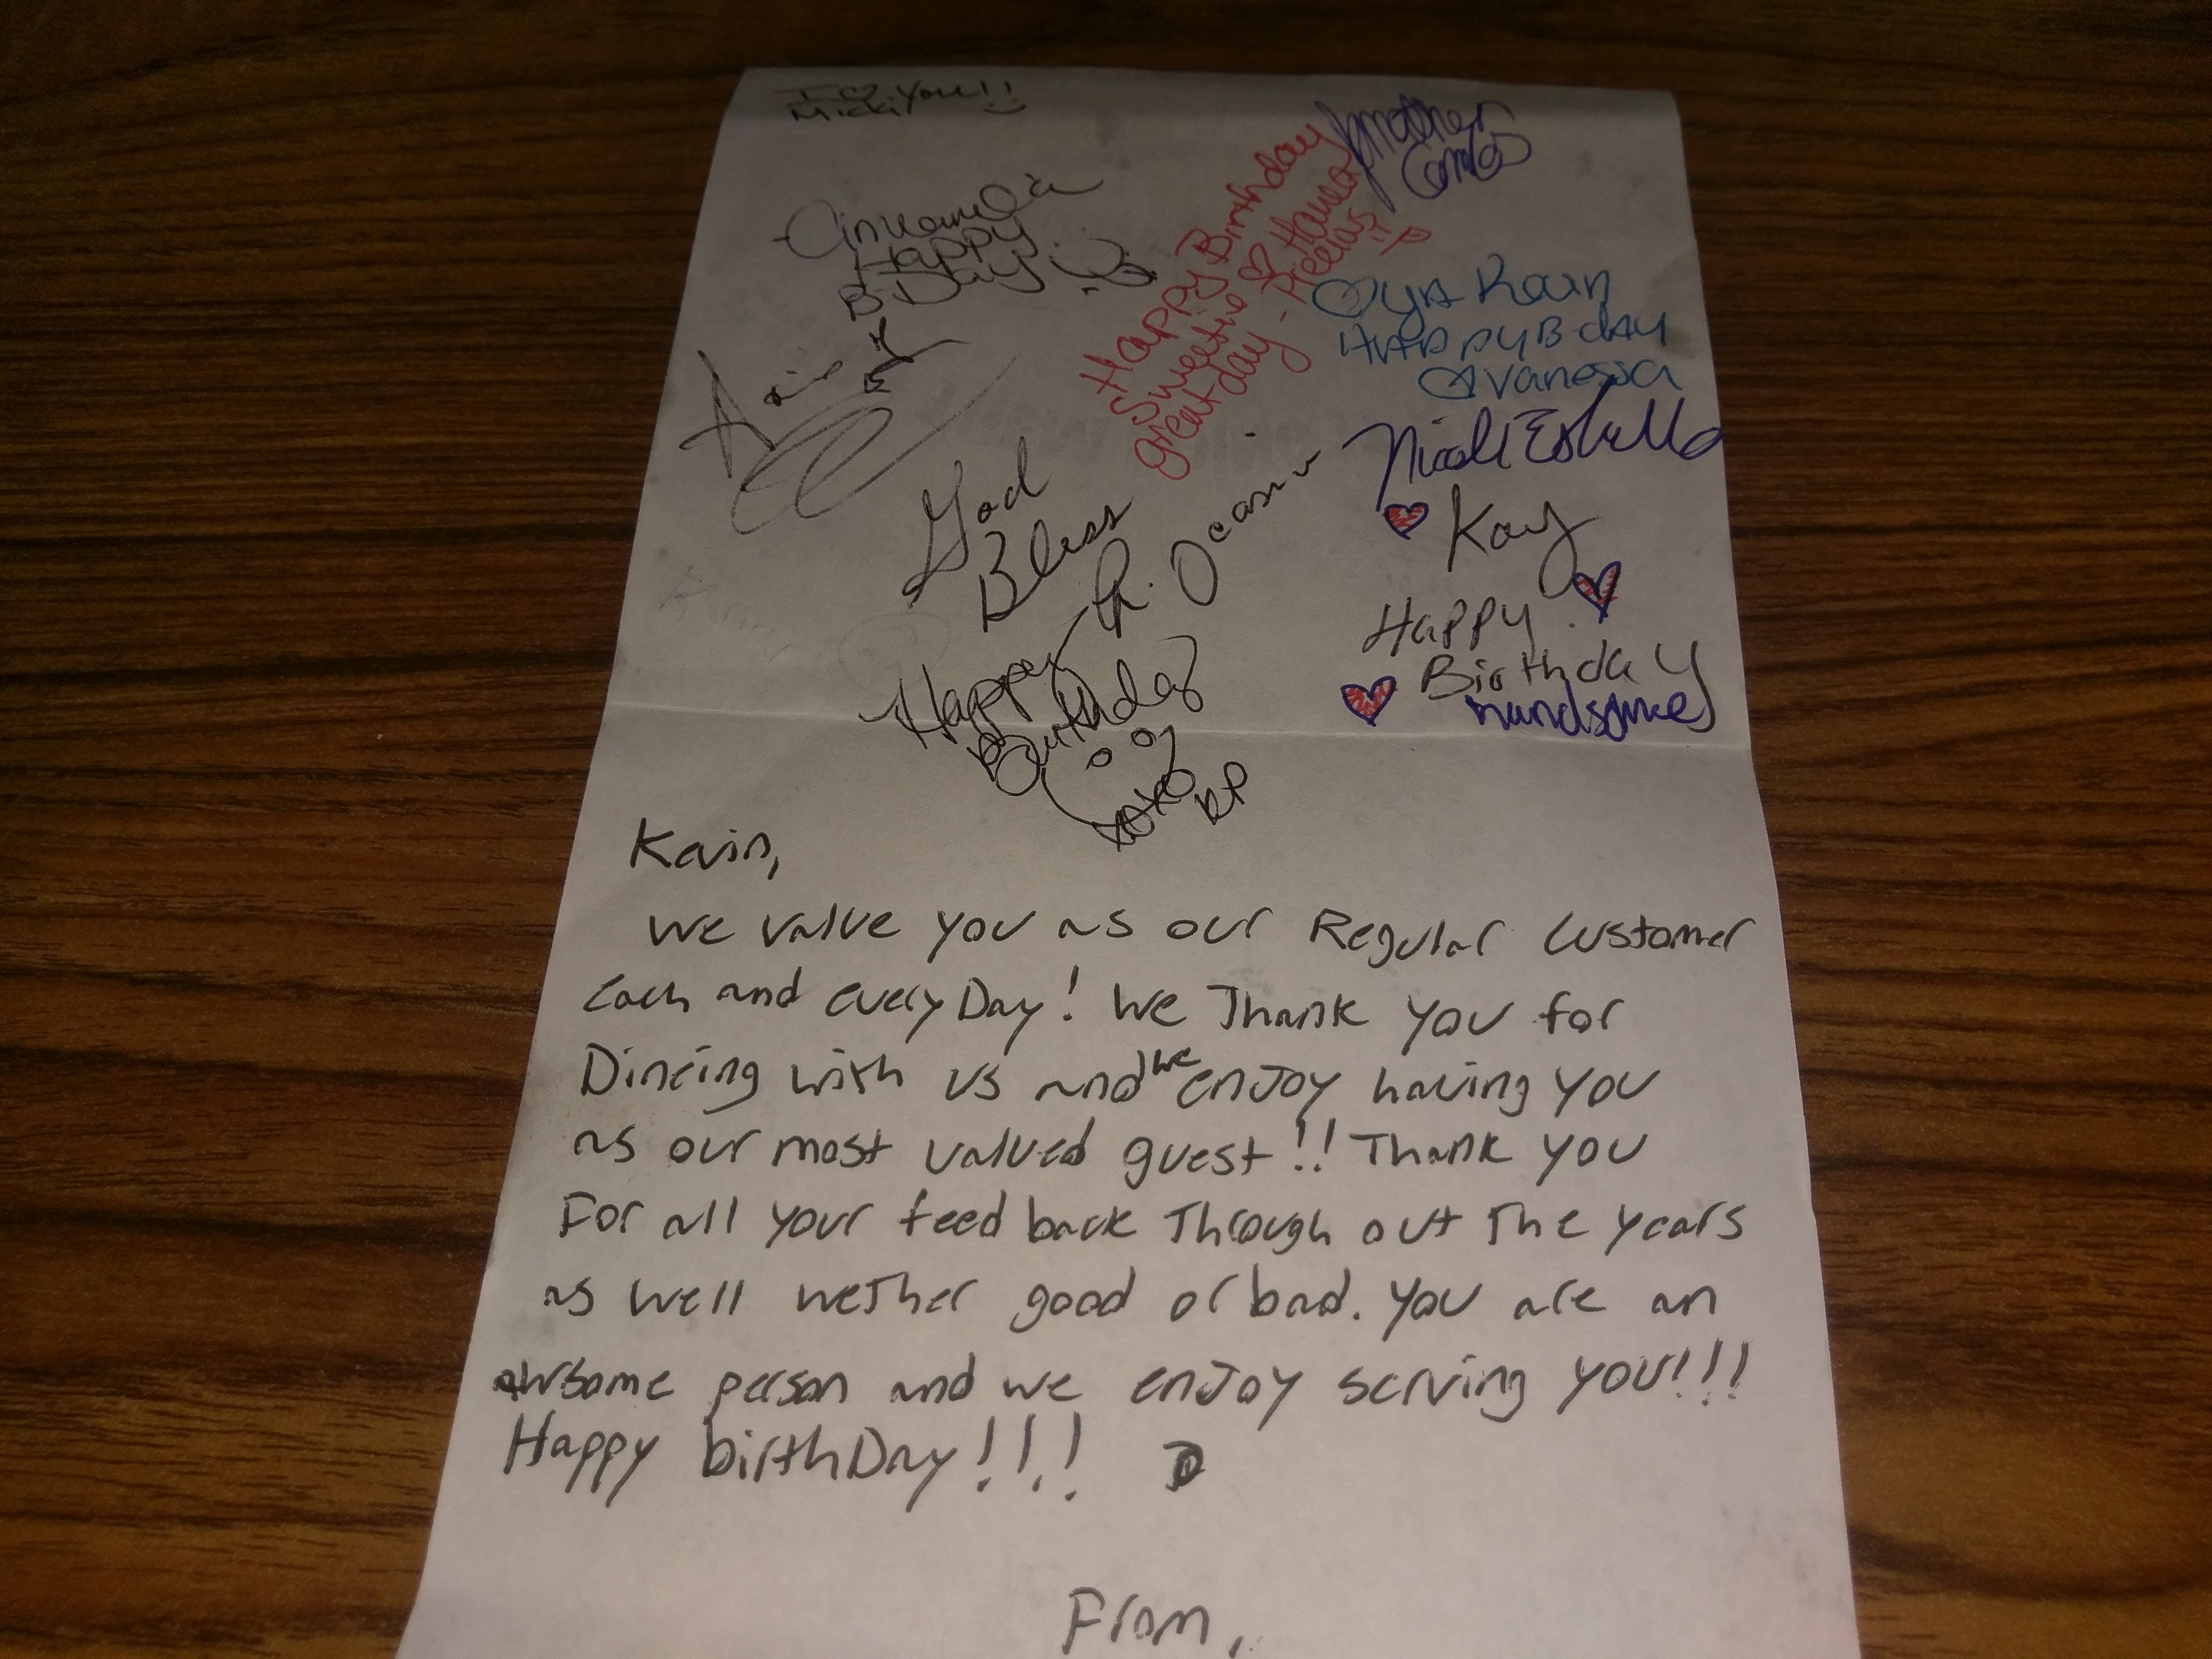 I ♡ You!!
Micki
Happy
B Day
Happy Birthday
Sweetie ♡ Have a
great day -
Happy B day
Vanessa
God
Bless
R. Ocasio
Kay
Happy
Birthday
handsome
Happy
Birthday
xoxo
Kevin,
We value you as our Regular Customer
Each and every Day! We Thank you for
Dineing with us and we enjoy having you
as our most valued guest!! Thank you
For all your feed back Through out The years
as well wether good or bad. You are an
awsome person and we enjoy serving you!!!
Happy birthDay!!!
From,